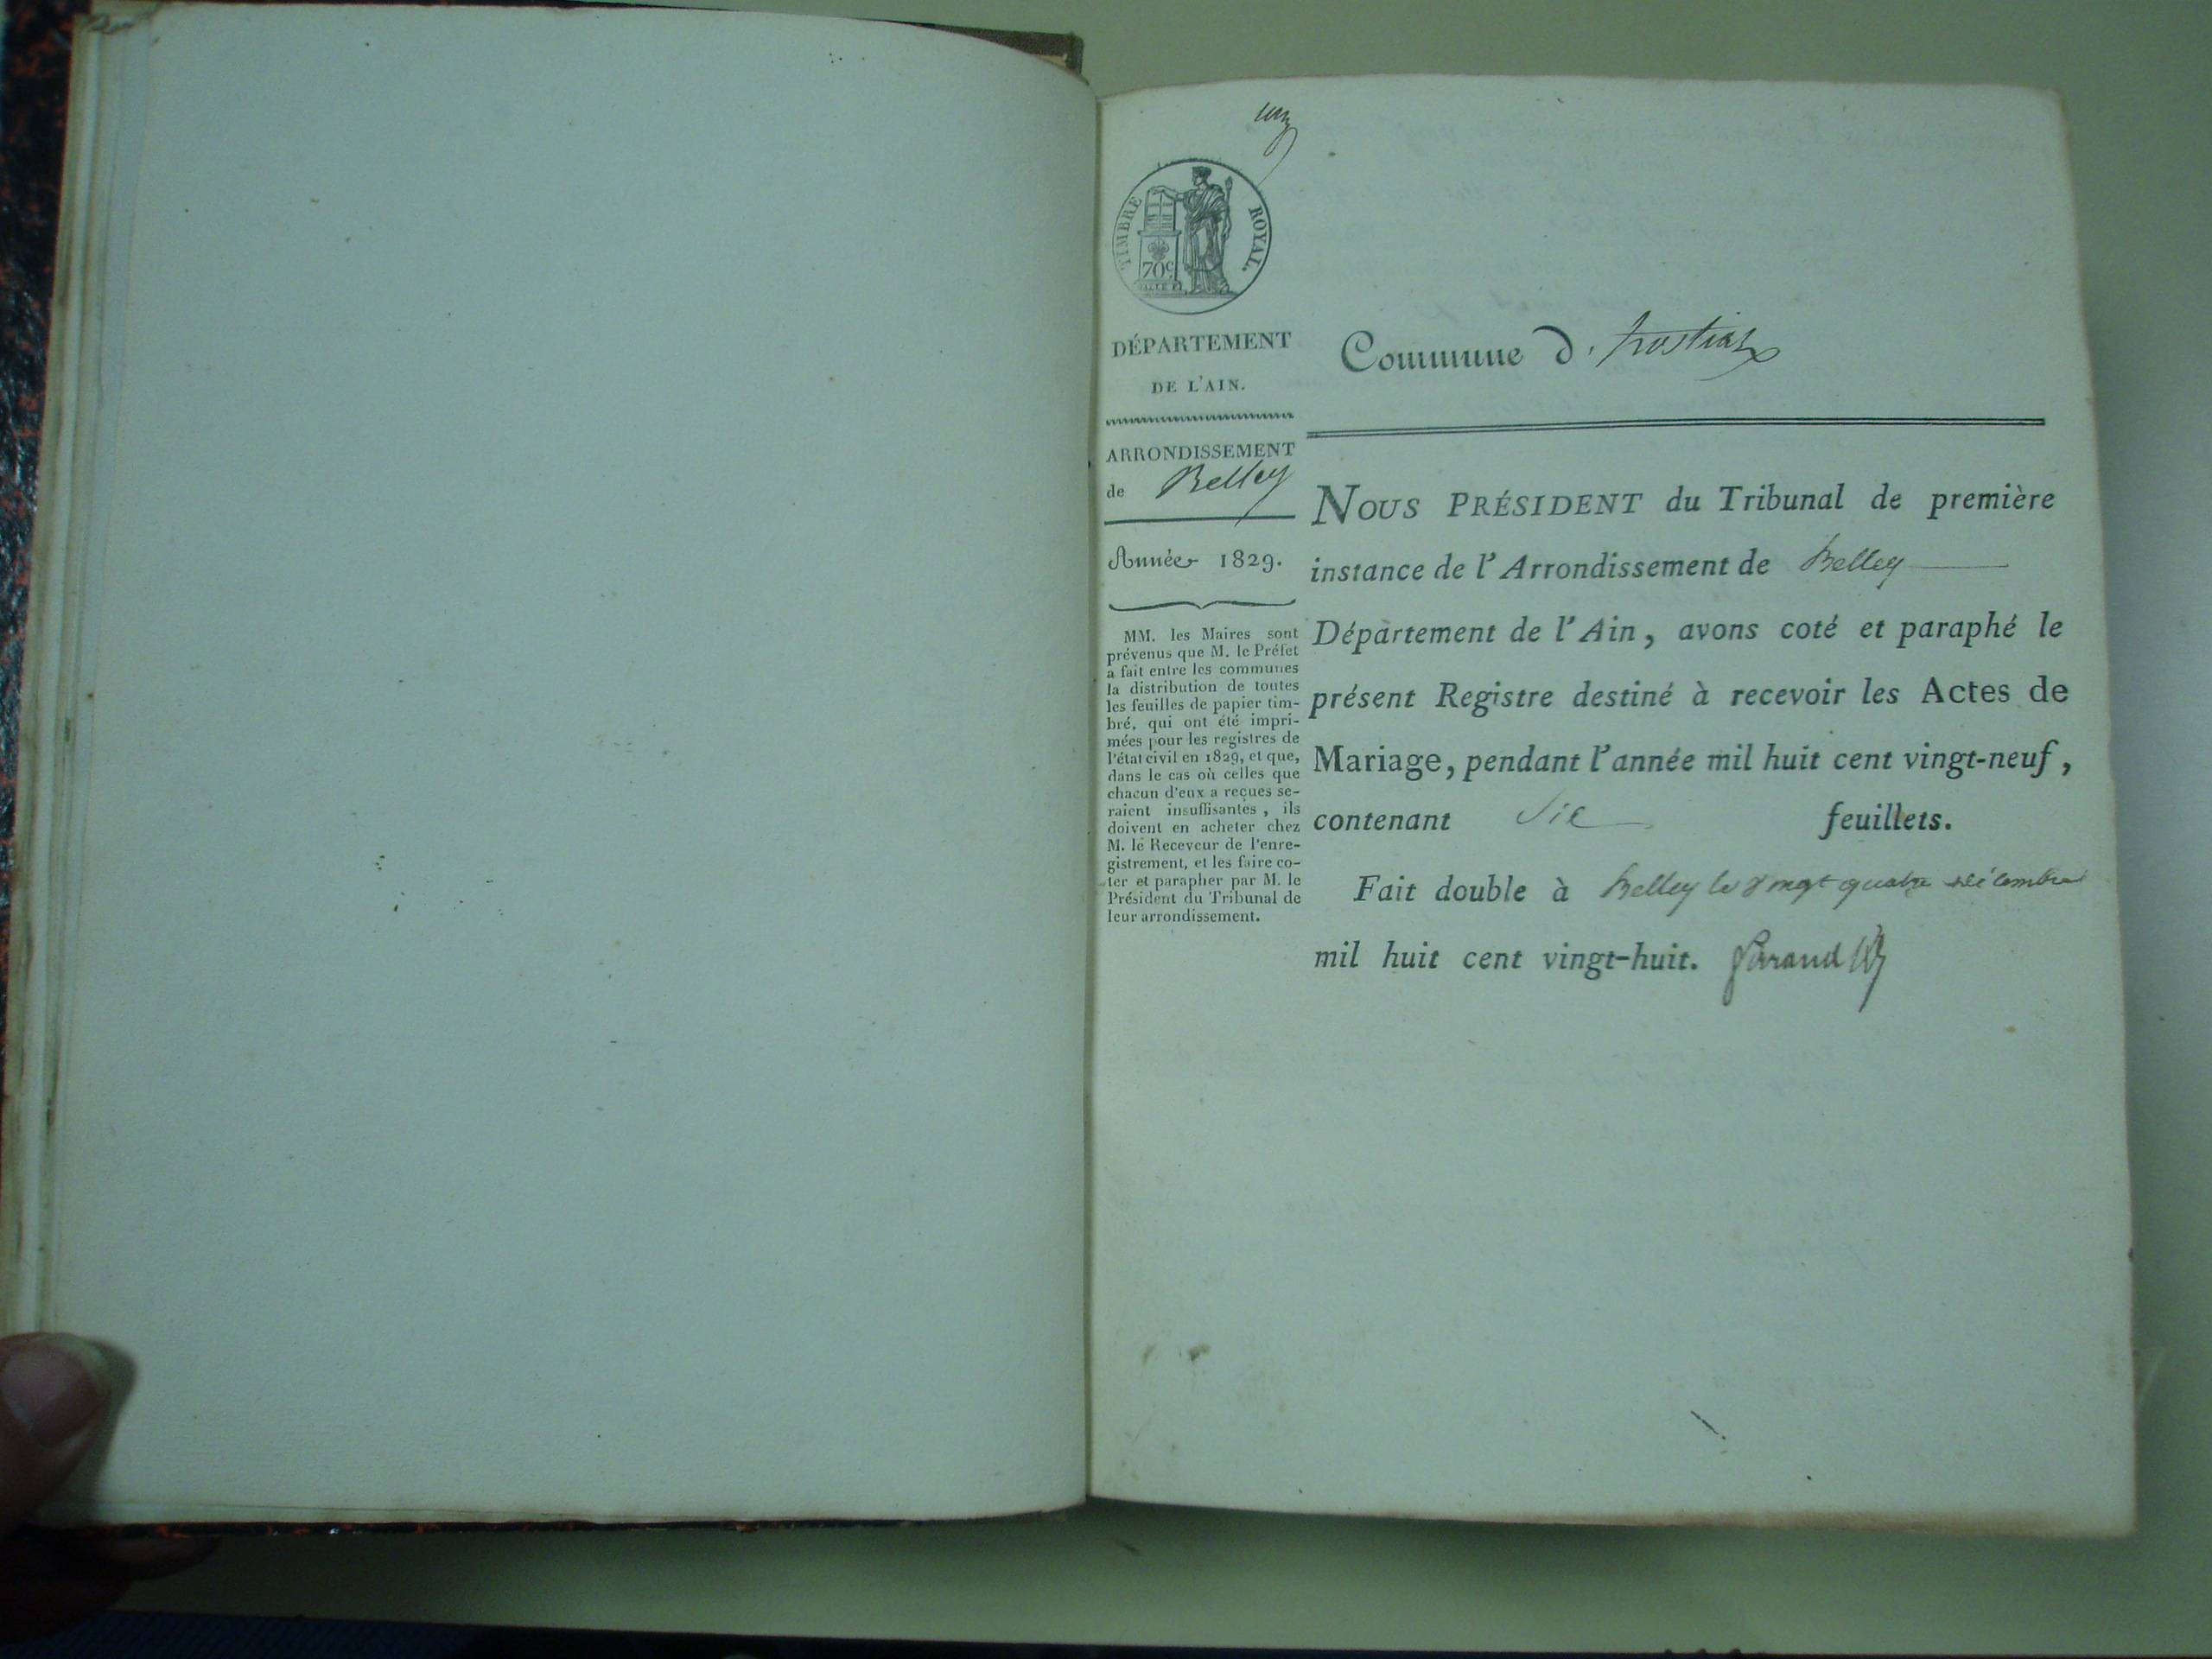 TIMBRE ROYAL.
70c
DÉPARTEMENT
DE L'AIN.
ARRONDISSEMENT
de Belley
Année 1829.
MM. les Maires sont
prévenus que M. le Préfet
a fait entre les communes
la distribution de toutes
les feuilles de papier tim-
bré, qui ont été impri-
mées pour les registres de
l'état civil en 1829, et que,
dans le cas où celles que
chacun d'eux a reçues se-
raient insuffisantes, ils
doivent en acheter chez
M. le Receveur de l'enre-
gistrement, et les faire co-
ter et parapher par M. le
Président du Tribunal de
leur arrondissement.
Commune d'hostiaz
NOUS PRÉSIDENT du Tribunal de première
instance de l'Arrondissement de Belley
Département de l'Ain, avons coté et paraphé le
présent Registre destiné à recevoir les Actes de
Mariage, pendant l'année mil huit cent vingt-neuf,
contenant Six feuillets.
Fait double à Belley le vingt quatre décembre
mil huit cent vingt-huit.